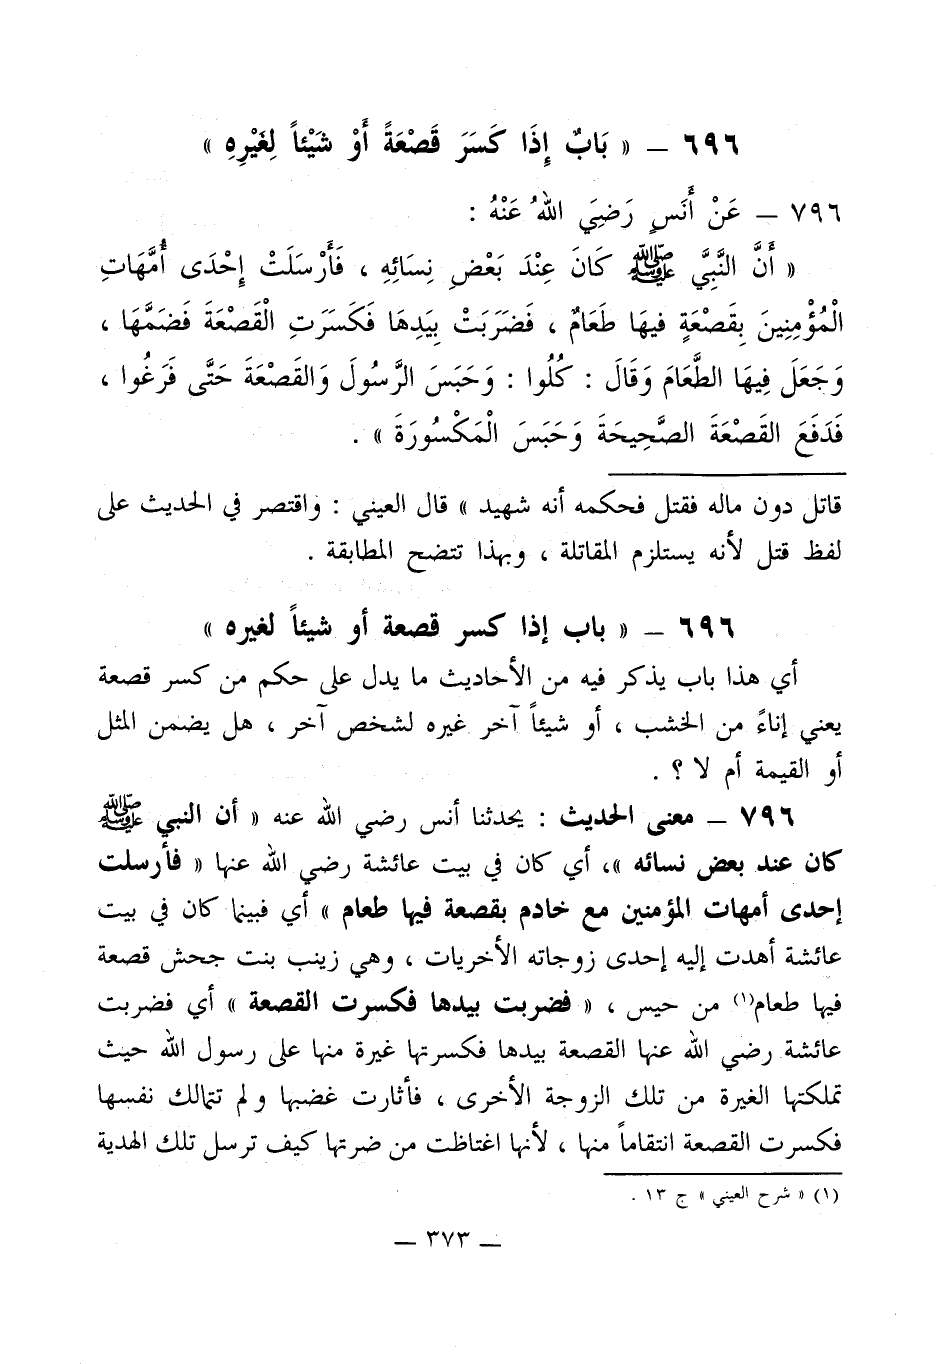 ٦٩٦ – « بَابٌ إِذَا كَسَرَ قَصْعَةً أَوْ شَيْئاً لِغَيْرِهِ »
٧٩٦ – عَنْ أَنَسٍ رَضِيَ اللهُ عَنْهُ :
« أَنَّ النَّبِيَّ ﷺ كَانَ عِنْدَ بَعْضِ نِسَائِهِ ، فَأَرْسَلَتْ إِحْدَى أُمَّهَاتِ
الْمُؤْمِنِينَ بِقَصْعَةٍ فِيهَا طَعَامٌ ، فَضَرَبَتْ بِيَدِهَا فَكَسَرَتِ الْقَصْعَةَ فَضَمَّهَا ،
وَجَعَلَ فِيهَا الطَّعَامَ وَقَالَ : كُلُوا : وَحَبَسَ الرَّسُولَ وَالقَصْعَةَ حَتَّى فَرَغُوا ،
فَدَفَعَ القَصْعَةَ الصَّحِيحَةَ وَحَبَسَ الْمَكْسُورَةَ » .
قاتل دون ماله فقتل فحكمه أنه شهيد » قال العيني : واقتصر في الحديث على
لفظ قتل لأنه يستلزم المقاتلة ، وبهذا تتضح المطابقة .
٦٩٦ – « باب إذا كسر قصعة أو شيئاً لغيره »
أي هذا باب يذكر فيه من الأحاديث ما يدل على حكم من كسر قصعة
يعني إناءً من الخشب ، أو شيئاً آخر غيره لشخص آخر ، هل يضمن المثل
أو القيمة أم لا ؟ .
٧٩٦ – معنى الحديث : يحدثنا أنس رضي الله عنه « أن النبي ﷺ
كان عند بعض نسائه »، أي كان في بيت عائشة رضي الله عنها « فأرسلت
إحدى أمهات المؤمنين مع خادم بقصعة فيها طعام » أي فبينما كان في بيت
عائشة أهدت إليه إحدى زوجاته الأخريات ، وهي زينب بنت جحش قصعة
فيها طعام(١) من حيس ، « فضربت بيدها فكسرت القصعة » أي فضربت
عائشة رضي الله عنها القصعة بيدها فكسرتها غيرة منها على رسول الله حيث
تملكتها الغيرة من تلك الزوجة الأخرى ، فأثارت غضبها ولم تتمالك نفسها
فكسرت القصعة انتقاماً منها ، لأنها اغتاظت من ضرتها كيف ترسل تلك الهدية
(١) « شرح العيني » ج ١٣ .
– ٣٧٣ –